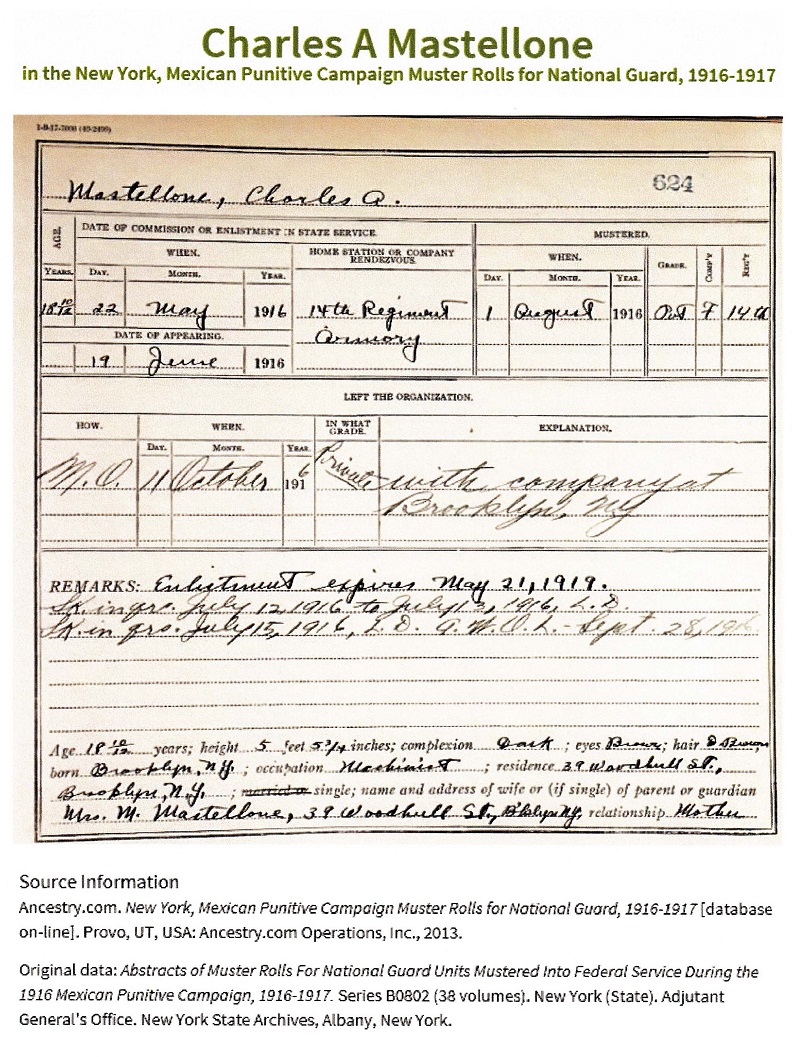 Charles A Mastellone
in the New York, Mexican Punitive Campaign Muster Rolls for National Guard, 1916-1917
624
Mastellone, Charles A.
AGE. DATE OF COMMISSION OR ENLISTMENT IN STATE SERVICE. MUSTERED.
WHEN. HOME STATION OR COMPANY RENDEZVOUS. WHEN. GRADE. COMP'Y REG'T
YEARS. DAY. MONTH. YEAR. DAY. MONTH. YEAR.
18 10/12 22 May 1916 14th Regiment 1 August 1916 Pvt F 14th
DATE OF APPEARING. Armory
19 June 1916
LEFT THE ORGANIZATION.
HOW. WHEN. IN WHAT GRADE. EXPLANATION.
DAY. MONTH. YEAR.
M.O. 11 October 1916 Private with company at
Brooklyn, NY
REMARKS: Enlistment expires May 21, 1919.
Sk. in qrs. July 12, 1916 to July 13, 1916, L.D.
Sk. in qrs. July 15, 1916, L.D. A.W.O.L. - Sept. 28, 1916
Age 18 10/12 years; height 5 feet 5 3/4 inches; complexion Dark ; eyes Brown; hair D Brown
born Brooklyn, N.Y. ; occupation Machinist ; residence 39 Woodhull St.,
Brooklyn, N.Y. ; married or single; name and address of wife or (if single) of parent or guardian
Mrs. M. Mastellone, 39 Woodhull St., B'klyn NY, relationship Mother
Source Information
Ancestry.com. New York, Mexican Punitive Campaign Muster Rolls for National Guard, 1916-1917 [database
on-line]. Provo, UT, USA: Ancestry.com Operations, Inc., 2013.
Original data: Abstracts of Muster Rolls For National Guard Units Mustered Into Federal Service During the
1916 Mexican Punitive Campaign, 1916-1917. Series B0802 (38 volumes). New York (State). Adjutant
General's Office. New York State Archives, Albany, New York.